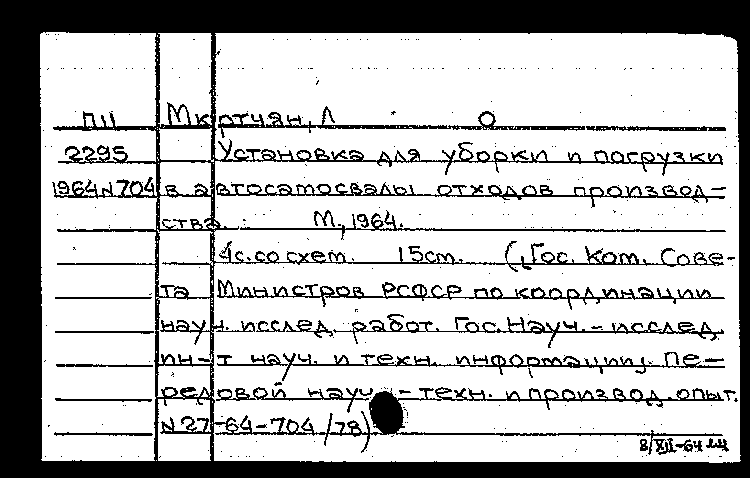 ПII Мкртчян, Л О
2295 Установка для уборки и погрузки
1964 N 704 в автосамосвалы отходов производ-
ства. М., 1964.
4с. со схем. 15см. (Гос. Ком. Сове-
та Министров РСФСР по координации
науч. исслед. работ. Гос. Науч.-исслед.
ин-т науч. и техн. информации. Пе-
редовой науч.-техн. и производ. опыт.
N 27-64-704/78)
8/XII-64